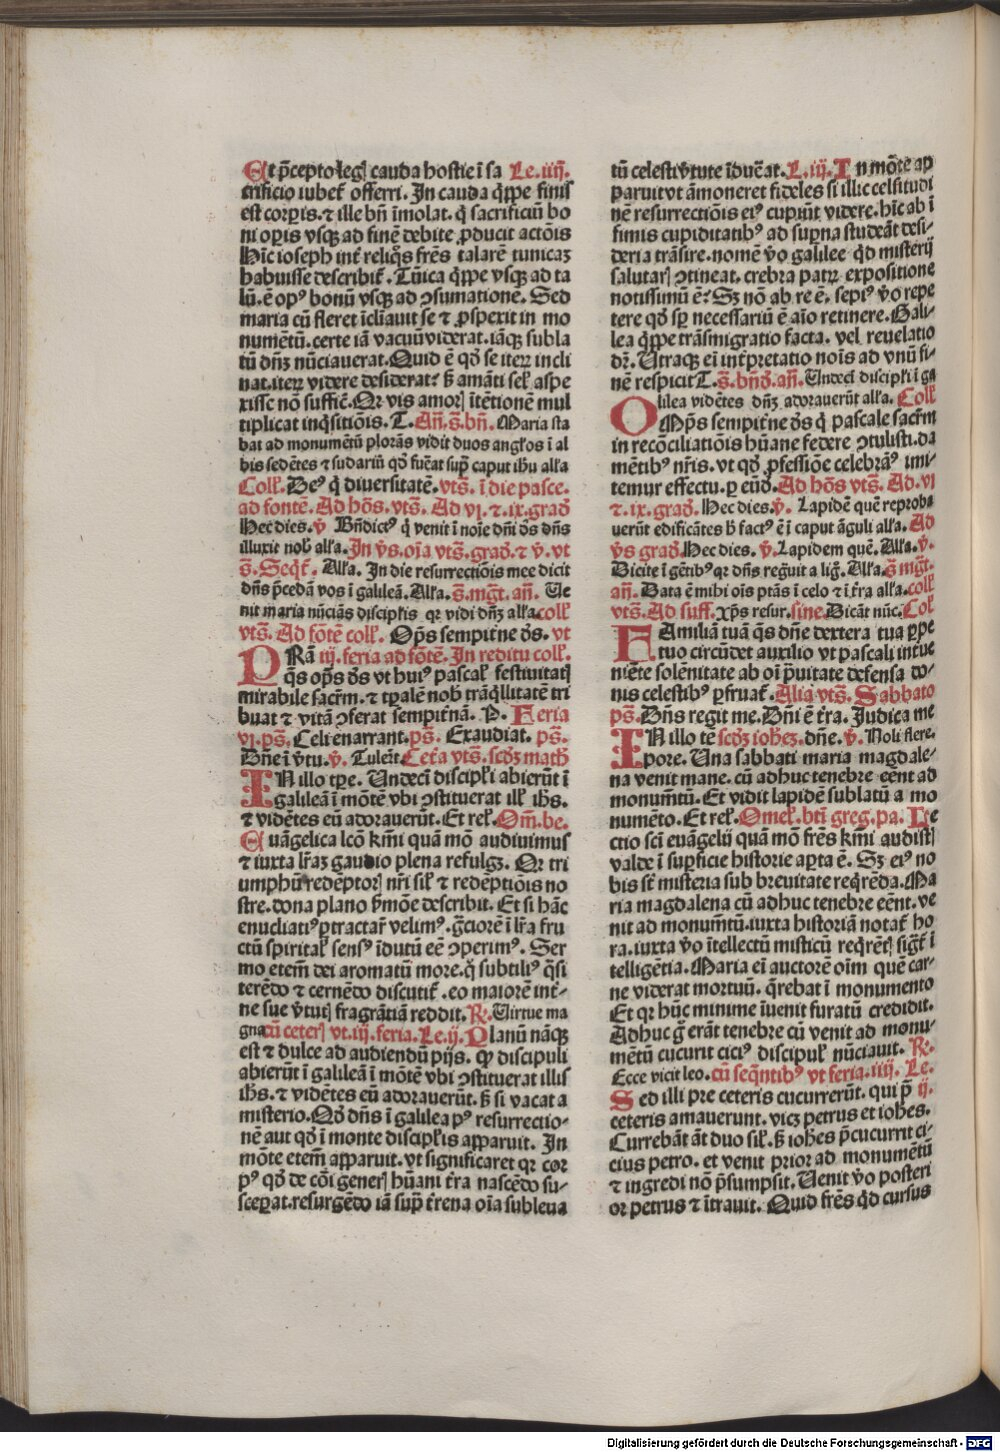 Et p̄cepto leg̃ cauda hostie ī sa Le.iiij.
crificio iubet̄ offerri. In cauda q̄ppe finis
est corꝑis. ⁊ ille bn̄ īmolat. q̄ sacrificiū bo
ni oꝑis vsqꝫ ad finē debite ꝓducit actōis
Hīc ioseph int̄ reliq̄s frēs talarē tunicaꝫ
habuisse describit̄. Tūica q̄ppe vsqꝫ ad ta
lū. ē opꝰ bonū vsqꝫ ad ꝯsumationē. Sed
maria cū fleret īcliauit se ⁊ ꝓspexit in mo
numētū. certe iā vacuū viderat. iāqꝫ subla
tū dn̄ꝫ nūciauerat. Quid ē qđ se iteꝝ incli
nat. iteꝝ videre desiderat? ß amāti sel̄ aspe
xisse nō suffic̄. Qꝛ vis amoꝝ ītētionē mul
tiplicat inq̄sitiōis. T. An̄. s̄. bn̄. Maria sta
bat ad monumētū plorās vidit duos angl̓os ī al
bis sedētes ⁊ sudariū qđ fuēat sup̄ caput ih̄u all̓a
Coll̓. Deꝰ q̄ diuersitatē. vts̄. ī die pasce.
ad fontē. Ad hōs. vts̄. Ad vi. ⁊ .ix. grad̄
Hec dies. ℣ Bn̄dictꝰ q̄ venit ī noīe dn̄i d̄s dn̄s
illuxit nob̄ all̓a. In v̄s. oīa vts̄. grad̄. ⁊ ℣. vt
s̄. Seq̄t̄. All̓a. In die resurrectiōis mee dicit
dn̄s p̄cedā vos ī galileā. All̓a. s̄. mg̅t. an̄. Ve
nit maria nūciās discipl̓is qꝛ vidi dn̄ꝫ all̓a. coll̓
vts̄. Ad fōtē coll̓. Op̄s sempit̄ne d̄s. vt
PRā iij. feria ad fōtē. In reditu coll̓.
q̄s op̄s d̄s vt huiꝰ pascal̓ festiuitatꝭ
mirabile sacr̄m. ⁊ tꝑalē nob̄ trāq̄llitatē tri
buat ⁊ vitā ꝯferat sempit̄nā. P. Feria
vi. ps̄. Celi enarrant. ps̄. Exaudiat. ps̄.
Dn̄e ī v̄tu. ℣. Tuler̄t. Cet̄a vts̄. scd̄ꝫ math̄
IN illo tꝑe. Undecī discipl̓i abierūt ī
galileā ī mōtē vbi ꝯstituerat ill̓ ih̄s.
⁊ vidētes eū adorauerūt. Et rel̓. Om̄. be.
Euāgelica lcō km̄i quā mō audiuimus
⁊ iuxta lr̄aꝫ gaudio plena refulgꝫ. Qꝛ tri
umphū redēptoꝝ nr̄i sil̓ ⁊ redēptiōis no
stre. dona plano s̄mōe describit. Et si hāc
enucliatiꝰ ꝑtractar̄ velimꝰ. g̅ciorē ī lr̄a fru
ctū spirital̓ sensꝰ īdutū eē ꝯperimꝰ. Ser
mo etem̄ dei aromatū more. q̄ subtiliꝰ q̄si
terēdo ⁊ cernēdo discutit̄. eo maiorē int̄-
ne sue v̄tutꝭ fragrātiā reddit. ℟. Virtue ma
gna cū ceterꝭ vt. iij. feria. Le. ij. Planū nāqꝫ
est ⁊ dulce ad audiendū pijs. Qꝙ discipuli
abierūt ī galileā ī mōtē vbi ꝯstituerat illis
ih̄s. ⁊ vidētes eū adorauerūt. ß si vacat a
misterio. Qđ dn̄s ī galilea pꝰ resurrectio-
nē aut qđ ī monte discipl̓is apparuit. In
mōte etem̄ apparuit. vt significaret qꝛ cor
pꝰ qđ de cōi generꝭ hūani t̄ra nascēdo su-
sceꝑat. resurgēdo iā sup̄ t̄rena oīa subleua
tū celesti v̄tute īduēat. L. iij. In mōte ap
paruit vt āmoneret fideles si illic celsitudi
nē resurrectiōis eiꝰ cupiūt videre. hīc ab ī
fimis cupiditatibꝰ ad suꝑna studeāt desi-
deria trāsire. nomē v̄o galilee qđ misterij
salutarꝭ ꝯtineat. crebra patꝝ expositione
notissimū ē? Sꝫ nō ab re ē. sepiꝰ v̄o repe
tere qđ sp̄ necessariū ē aīo retinere. Gali-
lea q̄ppe trāsmigratio facta. vel reuelatio
dr̄. Utraqꝫ eī int̄pretatio noīs ad vnū fi-
nē respicit T. s̄. bn̄d̄. an̄. Undecī discipl̓i ī ga
lilea vidētes dn̄ꝫ adorauerūt all̓a. Coll̓
OMp̄s sempit̄ne d̄s q̄ pascale sacr̄m
in recōciliatiōis hūane federe ꝯtulisti. da
mētibꝰ nr̄is. vt qđ ꝓfessiōe celebrāꝰ imi-
temur effectu. ꝑ eūd̄. Ad hōs vts̄. Ad. vi
⁊ .ix. grad̄. Hec dies. ℣. Lapidē quē reproba
uerūt edificātes h̄ factꝰ ē ī caput āguli all̓a. Ad
v̄s grad̄. Hec dies. ℣. Lapidem quē. All̓a. ℣.
Dicite ī gētibꝰ qꝛ dn̄s reg̅uit a lig̅. All̓a. s̄ mg̅t.
an̄. Data ē mihi oīs ptās ī celo ⁊ ī t̄ra all̓a. coll̓
vts̄. Ad suff. xp̄s resur. sine. Dicāt nūc. Col̓
FAmiliā tuā q̄s dn̄e dextera tua ꝑpe
tuo circūdet auxilio vt pascali int̄ue
niēte solēnitate ab oī p̄uitate defensa do-
nis celestibꝰ ꝑfruat̄. Alia vts̄. Sabbato
ps̄. Dn̄s regit me. Dn̄i ē t̄ra. Judica me
IN illo te scd̄ꝫ ioheꝫ. dn̄e. ℣. Noli flere.
pore. Una sabbati maria magdale-
na venit mane. cū adhuc tenebre eēnt ad
monum̄tū. Et vidit lapidē sublatū a mo
numēto. Et rel̓. Omel̓. bt̄i greg. pa. Le
ctio sc̄i euāgelij quā mō frēs km̄i audistꝭ
valde ī suꝑficie historie aꝑta ē. Sꝫ eiꝰ no
bis st̄ misteria sub breuitate req̄rēda. Ma
ria magdalena cū adhuc tenebre eēnt. ve
nit ad monum̄tū. iuxta historiā notat̄ ho
ra. iuxta v̄o ītellectū misticū req̄rētꝭ sig̅t̄ ī
telligētia. Maria eī auctorē oīm quē car-
ne viderat mortuū. q̄rebat ī monumento
Et qꝛ hūc minime īuenit furatū credidit.
Adhuc g̅ erāt tenebre cū venit ad monu-
mētū cucurit ciciꝰ discipul̓ nūciauit. ℟.
Ecce vicit leo. cū seq̄ntibꝰ vt feria. iiij. Le.
Sed illi pre ceteris cucurrerūt. qui p̄ ij.
ceteris amauerunt. viꝫ petrus et iohes.
Currebāt āt duo sil̓. ß iohes p̄cucurrit ci-
cius petro. et venit prior ad monumētū
⁊ ingredi nō p̄sumpsit. Uenit v̄o posteri
or petrus ⁊ ītrauit. Quid frēs qđ cursus
Digitalisierung gefördert durch die Deutsche Forschungsgemeinschaft - DFG